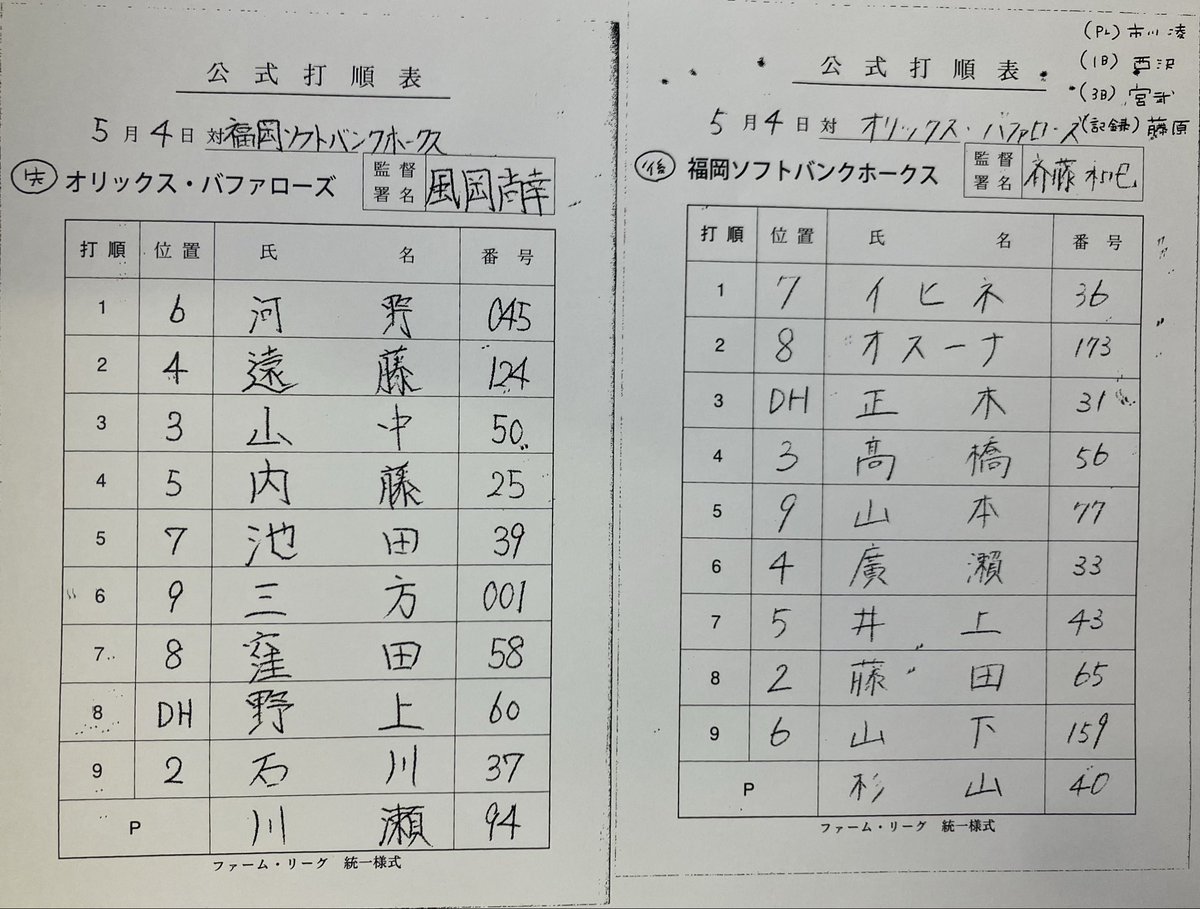 公式打順表
5月4日 対 福岡ソフトバンクホークス
先 オリックス・バファローズ 監督署名 風岡尚幸
打順 位置 氏名 番号
1 6 河野 045
2 4 遠藤 124
3 3 山中 50
4 5 内藤 25
5 7 池田 39
6 9 三方 001
7 8 窪田 58
8 DH 野上 60
9 2 石川 37
P 川瀬 94
ファーム・リーグ 統一様式
(PL) 市川 凌
(1B) 西沢
(3B) 宮武
(記録) 藤原
公式打順表
5月4日 対 オリックス・バファローズ
後 福岡ソフトバンクホークス 監督署名 斉藤和巳
打順 位置 氏名 番号
1 7 イヒネ 36
2 8 オスーナ 173
3 DH 正木 31
4 3 髙橋 56
5 9 山本 77
6 4 廣瀨 33
7 5 井上 43
8 2 藤田 65
9 6 山下 159
P 杉山 40
ファーム・リーグ 統一様式